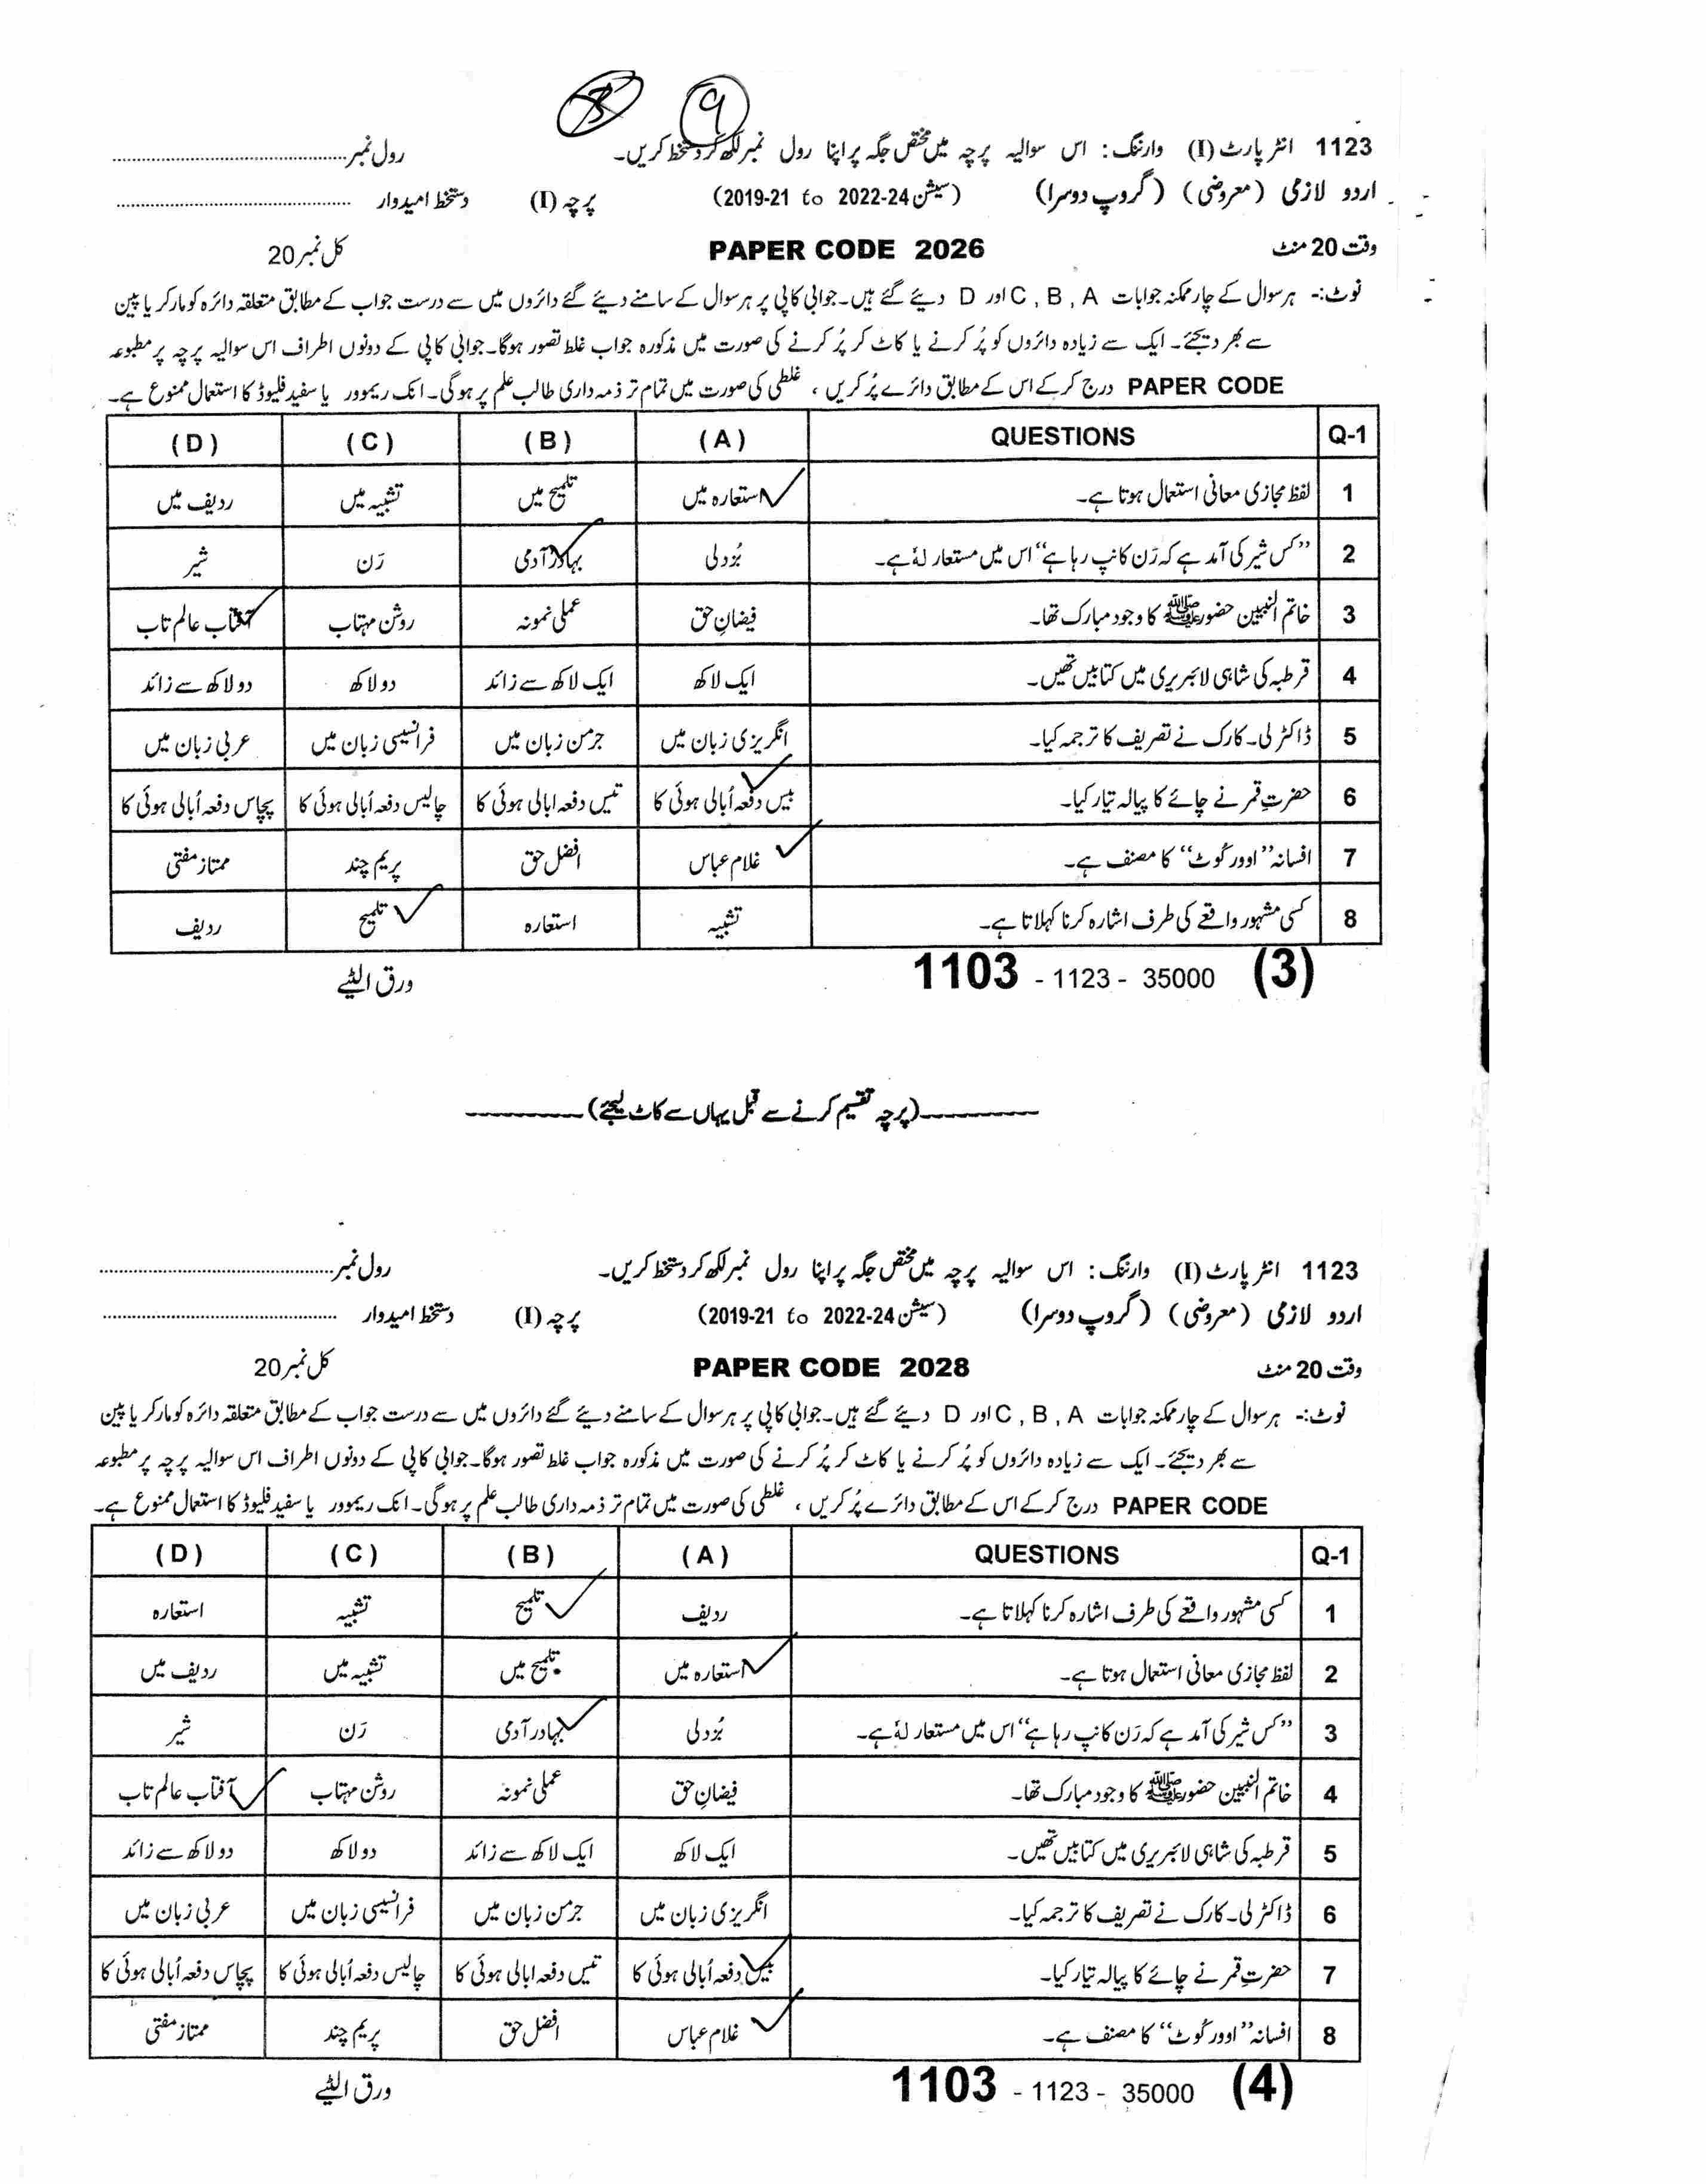 9
1123 انٹر پارٹ (I) وارننگ: اس سوالیہ پرچہ میں مختص جگہ پر اپنا رول نمبر لکھ کر دستخط کریں۔ رول نمبر
اردو لازمی (معروضی) (گروپ دوسرا) (سیشن 2019-21 to 2022-24) پرچہ (I) دستخط امیدوار
وقت 20 منٹ PAPER CODE 2026 کل نمبر 20
نوٹ:- ہر سوال کے چار ممکنہ جوابات C , B , A اور D دیئے گئے ہیں۔ جوابی کاپی پر ہر سوال کے سامنے دیئے گئے دائروں میں سے درست جواب کے مطابق متعلقہ دائرہ کو مارکر یا پین
سے بھر دیجئے۔ ایک سے زیادہ دائروں کو پُر کرنے یا کاٹ کر پُر کرنے کی صورت میں مذکورہ جواب غلط تصور ہوگا۔ جوابی کاپی کے دونوں اطراف اس سوالیہ پرچہ پر مطبوعہ
PAPER CODE درج کر کے اس کے مطابق دائرے پُر کریں ، غلطی کی صورت میں تمام تر ذمہ داری طالب علم پر ہوگی۔ انک ریموور یا سفید فلیوڈ کا استعمال ممنوع ہے۔
Q-1 QUESTIONS (A) (B) (C) (D)
1 لفظ مجازی معانی استعمال ہوتا ہے۔ استعارہ میں تلمیح میں تشبیہ میں ردیف میں
2 ’’کس شیر کی آمد ہے کہ رَن کانپ رہا ہے‘‘ اس میں مستعار لہٗ ہے۔ بُزدلی بہادر آدمی رَن شیر
3 خاتم النبیین حضور ﷺ کا وجود مبارک تھا۔ فیضانِ حق عملی نمونہ روشن مہتاب آفتاب عالم تاب
4 قرطبہ کی شاہی لائبریری میں کتابیں تھیں۔ ایک لاکھ ایک لاکھ سے زائد دو لاکھ دو لاکھ سے زائد
5 ڈاکٹر لی۔کارک نے تصریف کا ترجمہ کیا۔ انگریزی زبان میں جرمن زبان میں فرانسیسی زبان میں عربی زبان میں
6 حضرتِ قمر نے چائے کا پیالہ تیار کیا۔ بیس دفعہ اُبالی ہوئی کا تیس دفعہ ابالی ہوئی کا چالیس دفعہ اُبالی ہوئی کا پچاس دفعہ اُبالی ہوئی کا
7 افسانہ ’’اوور کوٹ‘‘ کا مصنف ہے۔ غلام عباس افضل حق پریم چند ممتاز مفتی
8 کسی مشہور واقعے کی طرف اشارہ کرنا کہلاتا ہے۔ تشبیہ استعارہ تلمیح ردیف
1103 - 1123 - 35000 (3) ورق الٹیے
(پرچہ تقسیم کرنے سے قبل یہاں سے کاٹ لیجئے)
1123 انٹر پارٹ (I) وارننگ: اس سوالیہ پرچہ میں مختص جگہ پر اپنا رول نمبر لکھ کر دستخط کریں۔ رول نمبر
اردو لازمی (معروضی) (گروپ دوسرا) (سیشن 2019-21 to 2022-24) پرچہ (I) دستخط امیدوار
وقت 20 منٹ PAPER CODE 2028 کل نمبر 20
نوٹ:- ہر سوال کے چار ممکنہ جوابات C , B , A اور D دیئے گئے ہیں۔ جوابی کاپی پر ہر سوال کے سامنے دیئے گئے دائروں میں سے درست جواب کے مطابق متعلقہ دائرہ کو مارکر یا پین
سے بھر دیجئے۔ ایک سے زیادہ دائروں کو پُر کرنے یا کاٹ کر پُر کرنے کی صورت میں مذکورہ جواب غلط تصور ہوگا۔ جوابی کاپی کے دونوں اطراف اس سوالیہ پرچہ پر مطبوعہ
PAPER CODE درج کر کے اس کے مطابق دائرے پُر کریں ، غلطی کی صورت میں تمام تر ذمہ داری طالب علم پر ہوگی۔ انک ریموور یا سفید فلیوڈ کا استعمال ممنوع ہے۔
Q-1 QUESTIONS (A) (B) (C) (D)
1 کسی مشہور واقعے کی طرف اشارہ کرنا کہلاتا ہے۔ ردیف تلمیح تشبیہ استعارہ
2 لفظ مجازی معانی استعمال ہوتا ہے۔ استعارہ میں تلمیح میں تشبیہ میں ردیف میں
3 ’’کس شیر کی آمد ہے کہ رَن کانپ رہا ہے‘‘ اس میں مستعار لہٗ ہے۔ بُزدلی بہادر آدمی رَن شیر
4 خاتم النبیین حضور ﷺ کا وجود مبارک تھا۔ فیضانِ حق عملی نمونہ روشن مہتاب آفتاب عالم تاب
5 قرطبہ کی شاہی لائبریری میں کتابیں تھیں۔ ایک لاکھ ایک لاکھ سے زائد دو لاکھ دو لاکھ سے زائد
6 ڈاکٹر لی۔کارک نے تصریف کا ترجمہ کیا۔ انگریزی زبان میں جرمن زبان میں فرانسیسی زبان میں عربی زبان میں
7 حضرتِ قمر نے چائے کا پیالہ تیار کیا۔ بیس دفعہ اُبالی ہوئی کا تیس دفعہ ابالی ہوئی کا چالیس دفعہ اُبالی ہوئی کا پچاس دفعہ اُبالی ہوئی کا
8 افسانہ ’’اوور کوٹ‘‘ کا مصنف ہے۔ غلام عباس افضل حق پریم چند ممتاز مفتی
1103 - 1123 - 35000 (4) ورق الٹیے